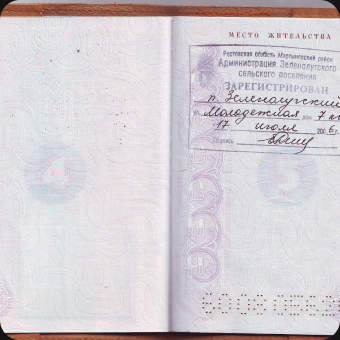 МЕСТО ЖИТЕЛЬСТВА
Ростовская область Мартыновский район
Администрация Зеленолугского
сельского поселения
ЗАРЕГИСТРИРОВАН
п. Зеленолугский
ул. Молодежная дом 7
17 июля 2006 г.
Подпись
4
5